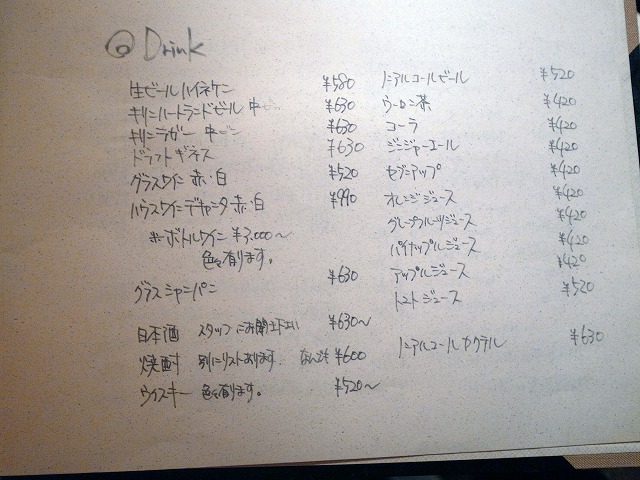 ◎ Drink
生ビール ハイネケン ¥580
キリンハートランドビール 中ビン ¥630
キリンラガー 中ビン ¥630
ドラフトギネス ¥630
グラスワイン 赤・白 ¥520
ハウスワインデキャンタ 赤・白 ¥990
※ボトルワイン ¥3,000〜
色々有ります。
グラスシャンパン ¥630
日本酒 スタッフにお聞き下さい ¥630〜
焼酎 別にリストあります。 なんでも ¥600
ウイスキー 色々有ります。 ¥520〜
ノンアルコールビール ¥520
ウーロン茶 ¥420
コーラ ¥420
ジンジャーエール ¥420
セブンアップ ¥420
オレンジジュース ¥420
グレープフルーツジュース ¥420
パイナップルジュース ¥420
アップルジュース ¥420
トマトジュース ¥520
ノンアルコールカクテル ¥630